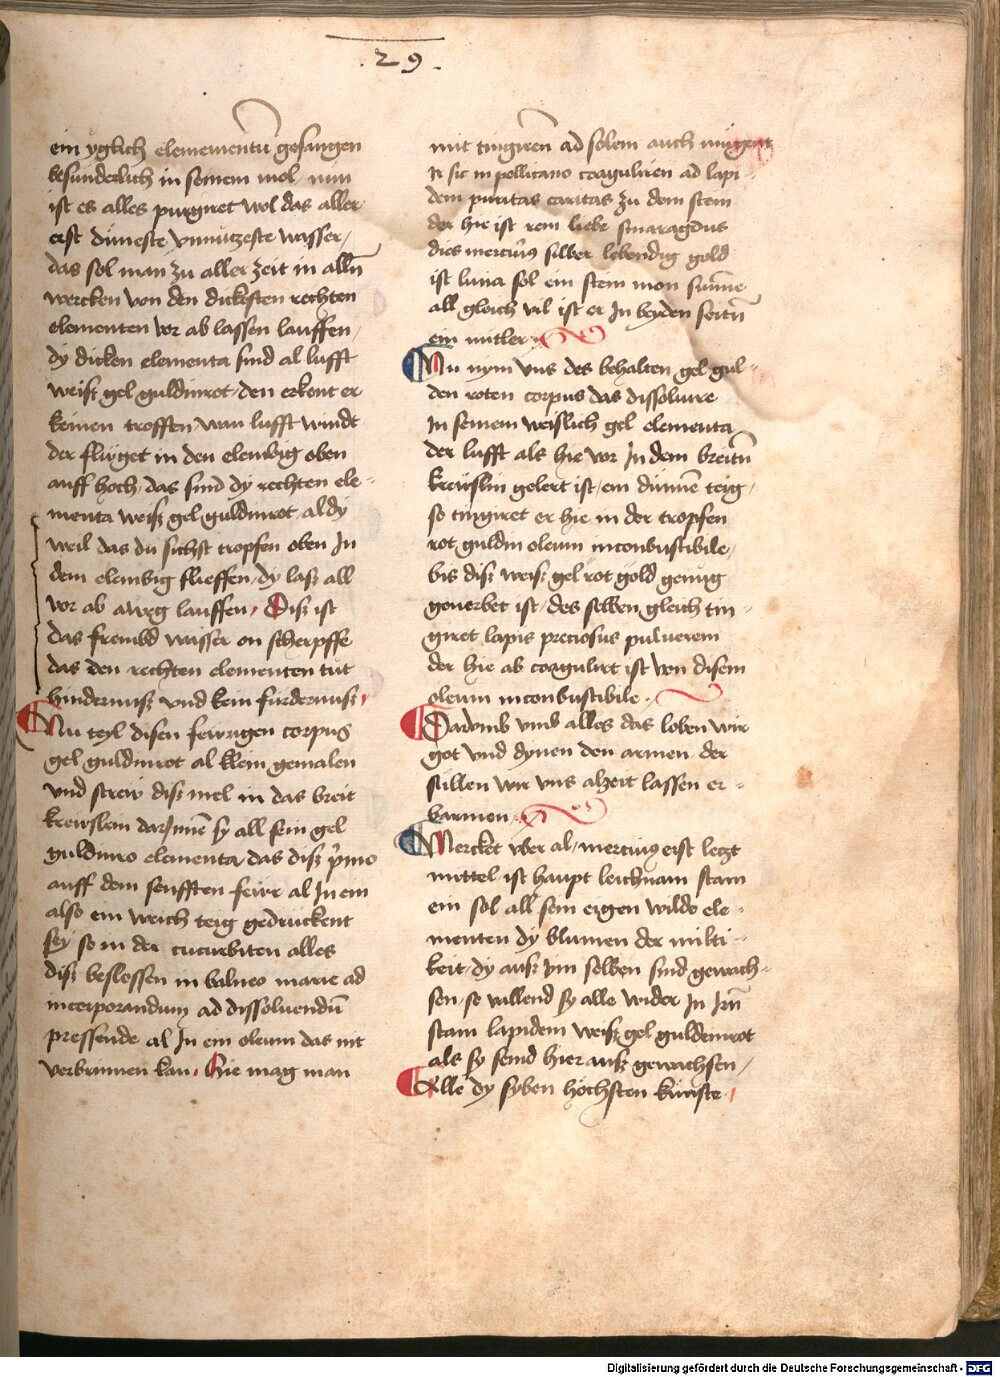 .29.
ein yglich elemementū gefangen
besunderlich in seinem mol nun
ist es alles purgiret wol das aller
erst dunneste vnnutzeste wasser /
das sol man zu aller zeit in allñ
wercken von den dicksten rechten
elementen vor ab lassen lauffen /
dy dicken elementa sind al lufft
weiß gel guldinrot den erkent er
keinen trofften wan lufft windt
der flüget in den elembig oben
auff hoch / das sind dy rechten ele-
menta weiß gel guldinrot al dy
weil das du sichst tropfen oben In
dem elembig flieffen / dy laß all
vor ab aweg lauffen / Diß ist
das frembd wasser on scherpffe
das den rechten elementen tüt
hindernuß vnd kein furdernuß /
Nu teyl disen feirigen corpus
gel guldinrot al klein gemalen
vnd strew diß mel in das breit
krewslein darInnē sy all sein gel
guldinro elementa das diß p̄mo
auff dem senfften feire al In ein
also ein weich teig gedruckent
sey so in der cucurbiten alles
diß beslessen in balneo marie ad
incorporandum ad dissoluendū
pressende al In ein oleum das nit
verbrinnen kan / Hie mag man
mit tingiren ad solem auch
It sic in pellicano coaguliren ad lapi-
dem puritas caritas zu dem stein
der hie ist rein liebe smaragdus
dies mercuri9 silber lebendig gold
ist luna sol ein stein mon sunne
all gleich vil ist er In beyden seitñ
ein mitler
Nu nym vns des behalten gel gul-
den roten corpus das dissoluire
In seinem weislich gel elementa
der lufft als hie vor In dem breitñ
krewslin gelert ist / ein dunnē teig /
so tingiret er hie in der tropfen
rot guldin oleum inconbustibile /
bis diß weiß gel rot gold genug
geuerbet ist / des selben gleich tin-
giret lapis preciosus puluerem
der hie ab coagulirt ist von disem
oleum inconbustibile
Darvmb vmb alles das loben wir
got vnd dynen den armen der
stillen wir vns alzeit lassen er-
barmen
Mercket wer al / mercurius erst letzt
mittel ist haupt leichnam stam
ein sol all sein eigen wilde ele-
menten dy blumen der milti-
keit / dy auß Im selben sind gewach-
sen / so vallend sy alle wider In Irñ
stam lapidem weiß gel guldenrot
als sy seind hier auß gewachsen /
Alle dy syben höchsten künste /
Digitalisierung gefördert durch die Deutsche Forschungsgemeinschaft - DFG